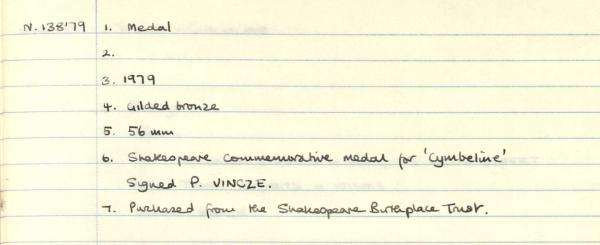 N.138'79 1. Medal
2.
3. 1979
4. Gilded bronze
5. 56 mm
6. Shakespeare commemorative medal for 'Cymbeline'
Signed P. VINCZE.
7. Purchased from the Shakespeare Birthplace Trust.